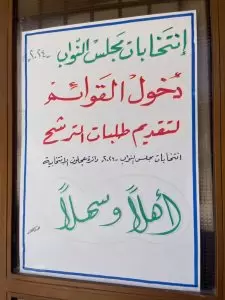 إنتخابات مجلس النواب ٢٠٢٤
دخول القوائم
لتقديم طلبات الترشح
انتخابات مجلس النواب ٢٠٢٤ دائرة عجلون الانتخابية
أهلاً وسهلاً